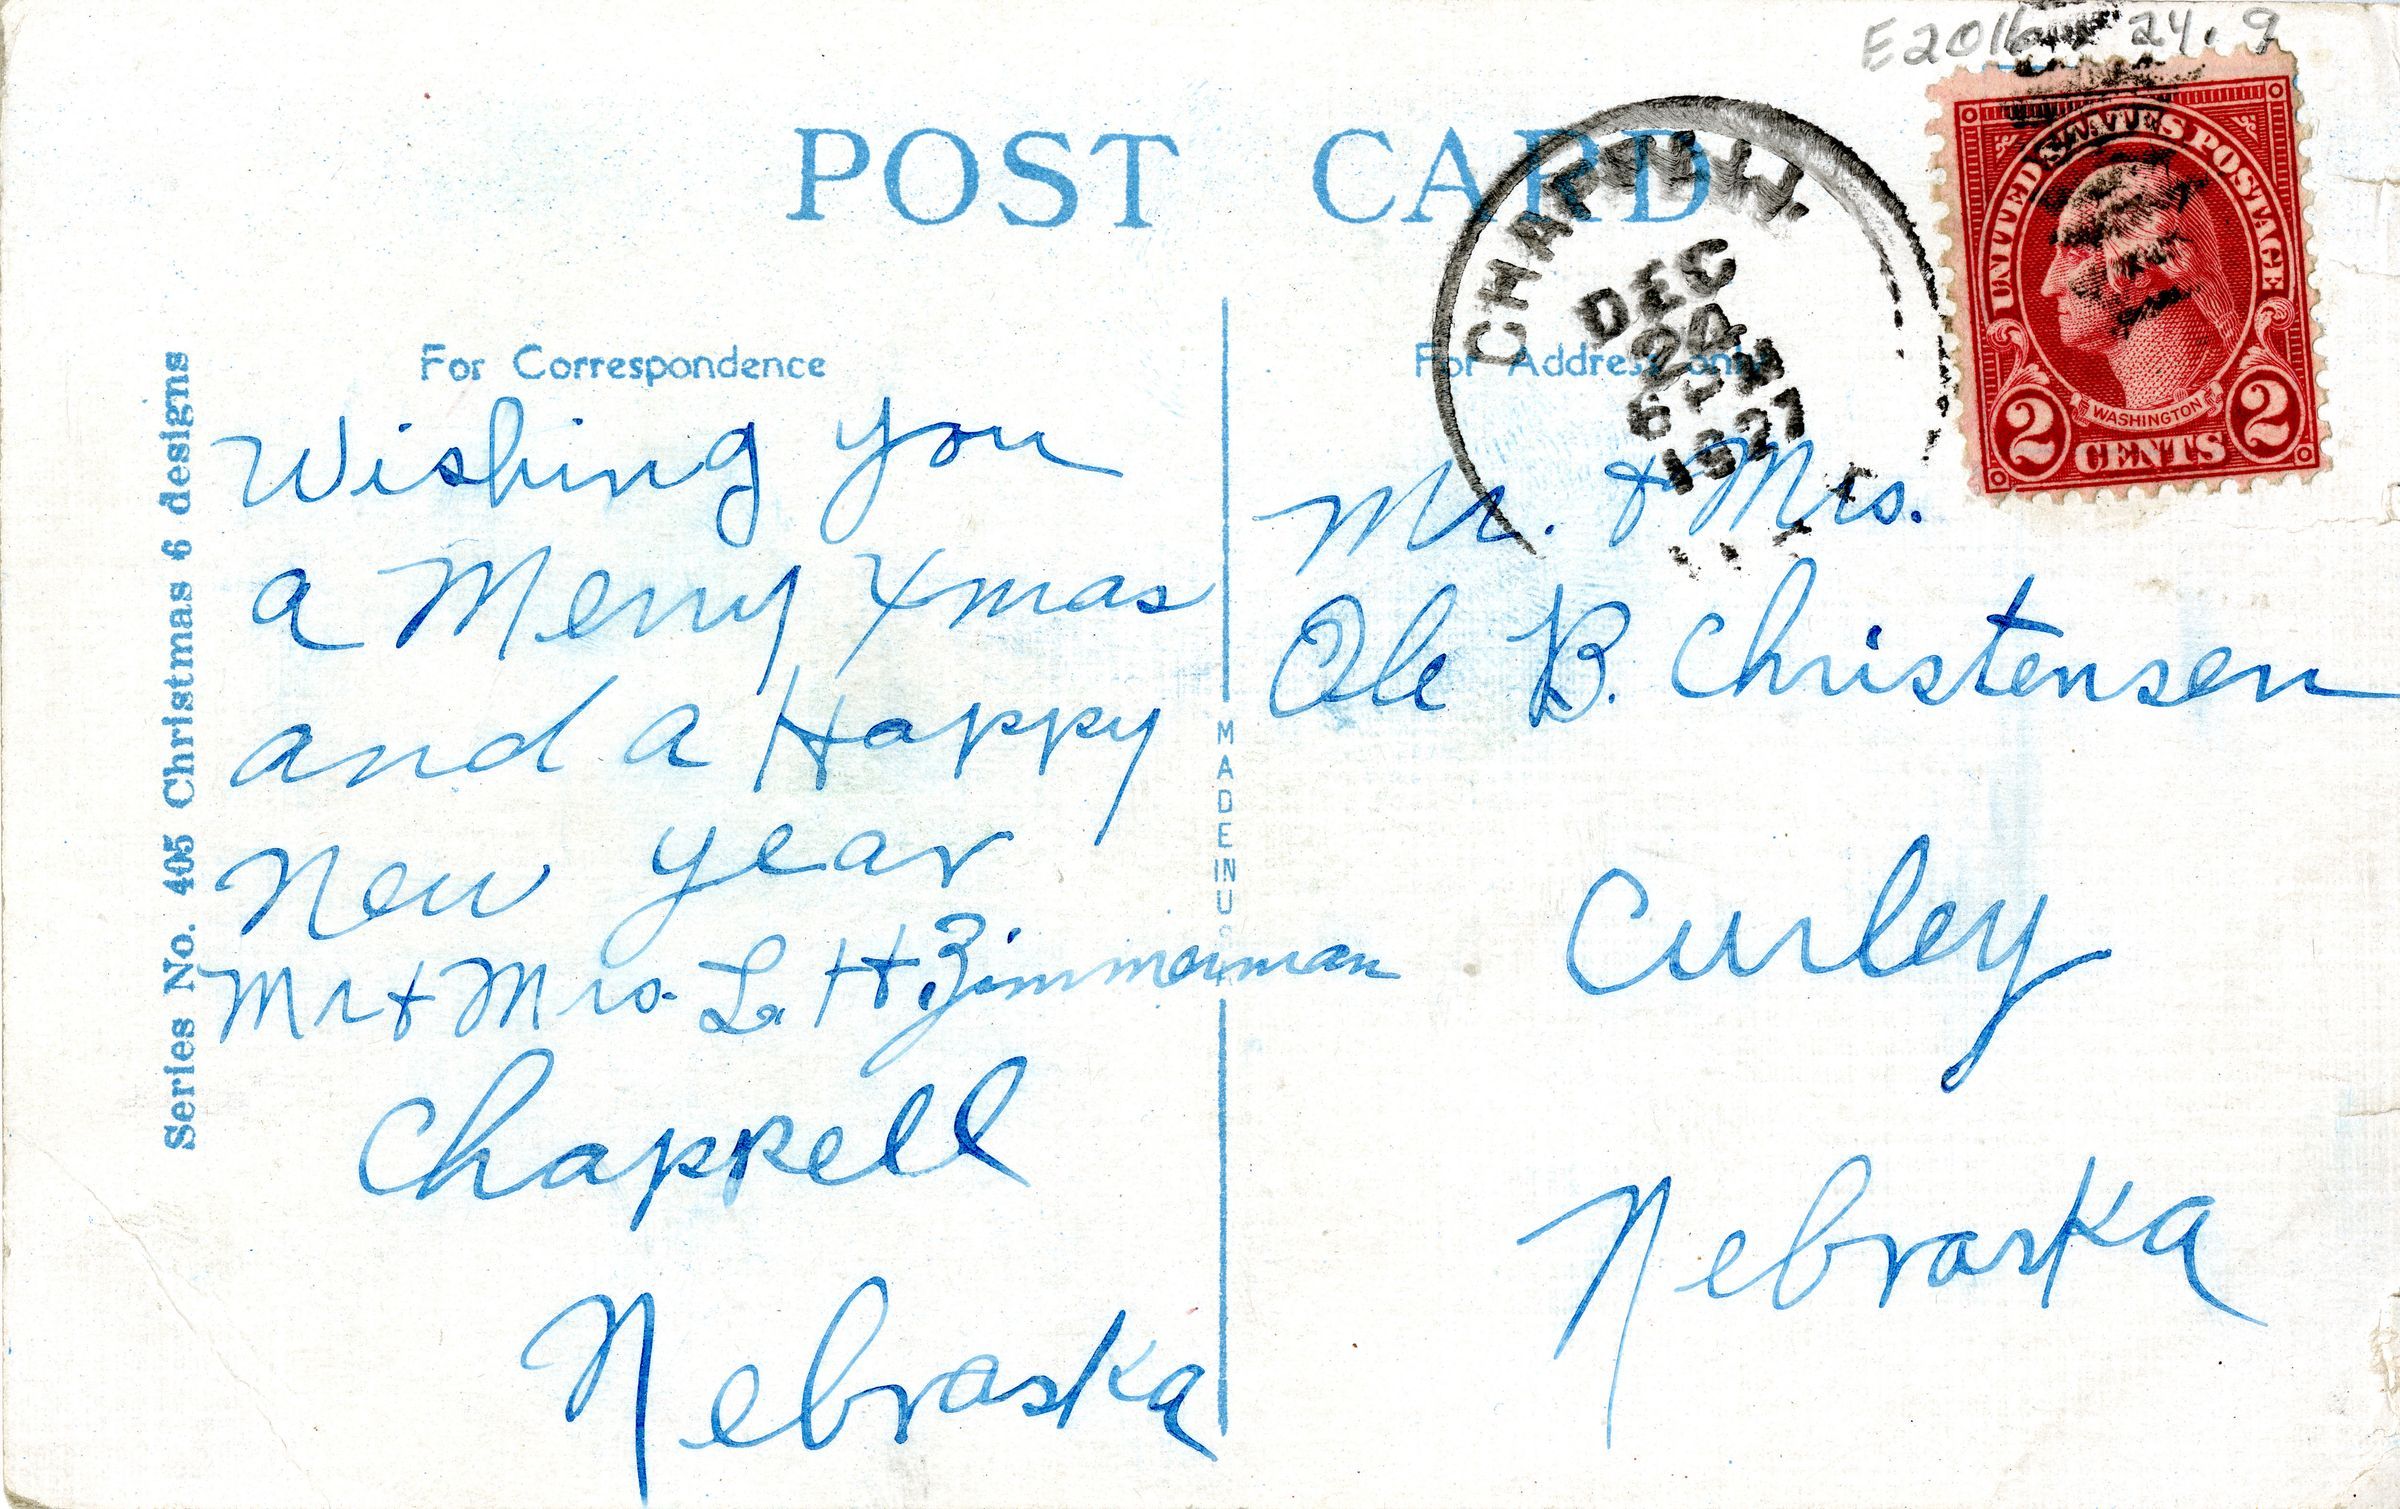 E2016 24.9
POST CARD
CHAPPELL.
DEC
24
6 PM
1927
UNITED STATES POSTAGE
WASHINGTON
2 CENTS 2
Series No. 405 Christmas 6 designs
For Correspondence
Wishing you
a Merry Xmas
and a Happy
New year
Mr & Mrs. L. H. Zimmerman
Chappell
Nebraska
MADE IN U
For Address only
Mr. & Mrs.
Ole B. Christensen
Curley
Nebraska